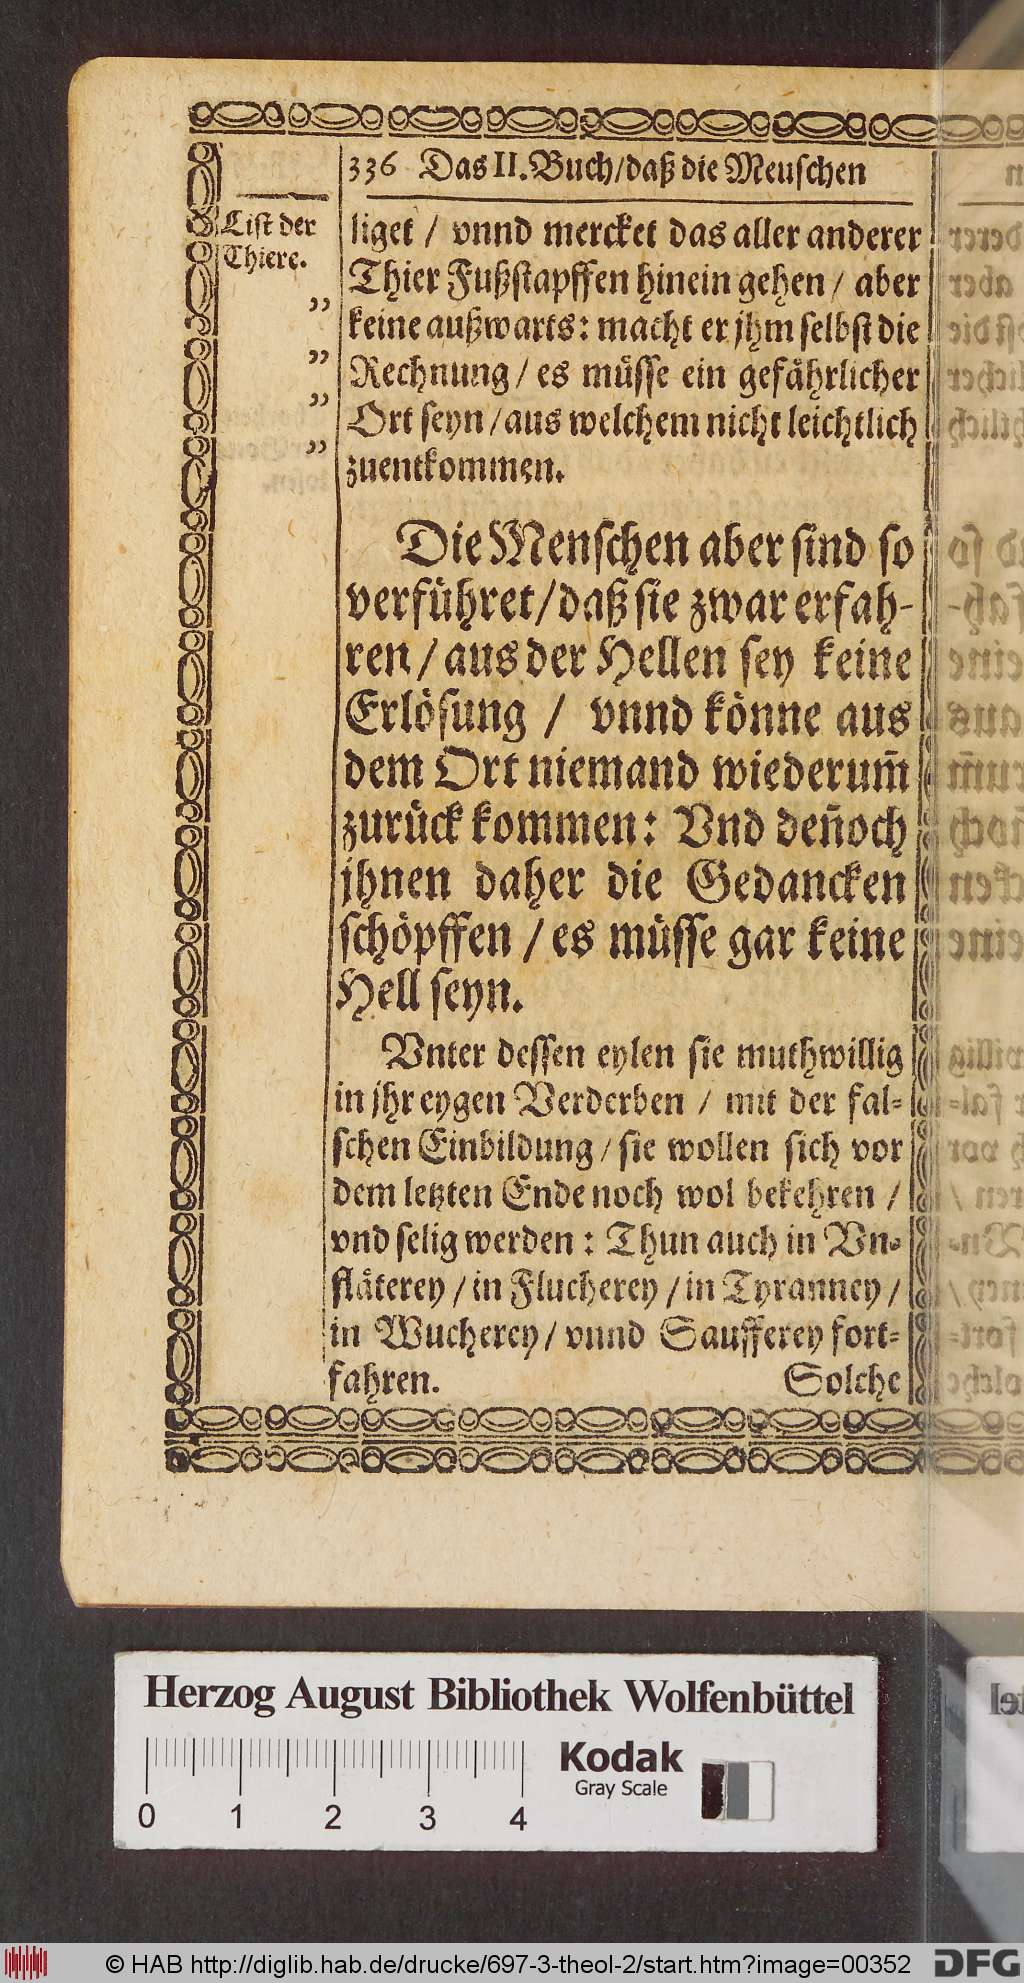 336 Das II. Buch/daß die Meuschen
List der
Thiere.
liget / vnnd mercket das aller anderer
Thier Fußstapffen hinein gehen / aber
„
keine außwarts: macht er jhm selbst die
„
Rechnung / es müsse ein gefährlicher
„
Ort seyn / aus welchem nicht leichtlich
„
zuentkommen.
Die Menschen aber sind so
verführet/daß sie zwar erfah-
ren / aus der Hellen sey keine
Erlösung / vnnd könne aus
dem Ort niemand wiederum̃
zurück kommen: Vnd deñoch
jhnen daher die Gedancken
schöpffen / es müsse gar keine
Hell seyn.
Vnter dessen eylen sie muthwillig
in jhr eygen Verderben / mit der fal-
schen Einbildung / sie wollen sich vor
dem letzten Ende noch wol bekehren /
vnd selig werden : Thun auch in Vn-
fläterey / in Flucherey / in Tyranney /
in Wucherey / vnnd Saufferey fort-
fahren.
Solche
Herzog August Bibliothek Wolfenbüttel
0 1 2 3 4
Kodak
Gray Scale
© HAB http://diglib.hab.de/drucke/697-3-theol-2/start.htm?image=00352
DFG